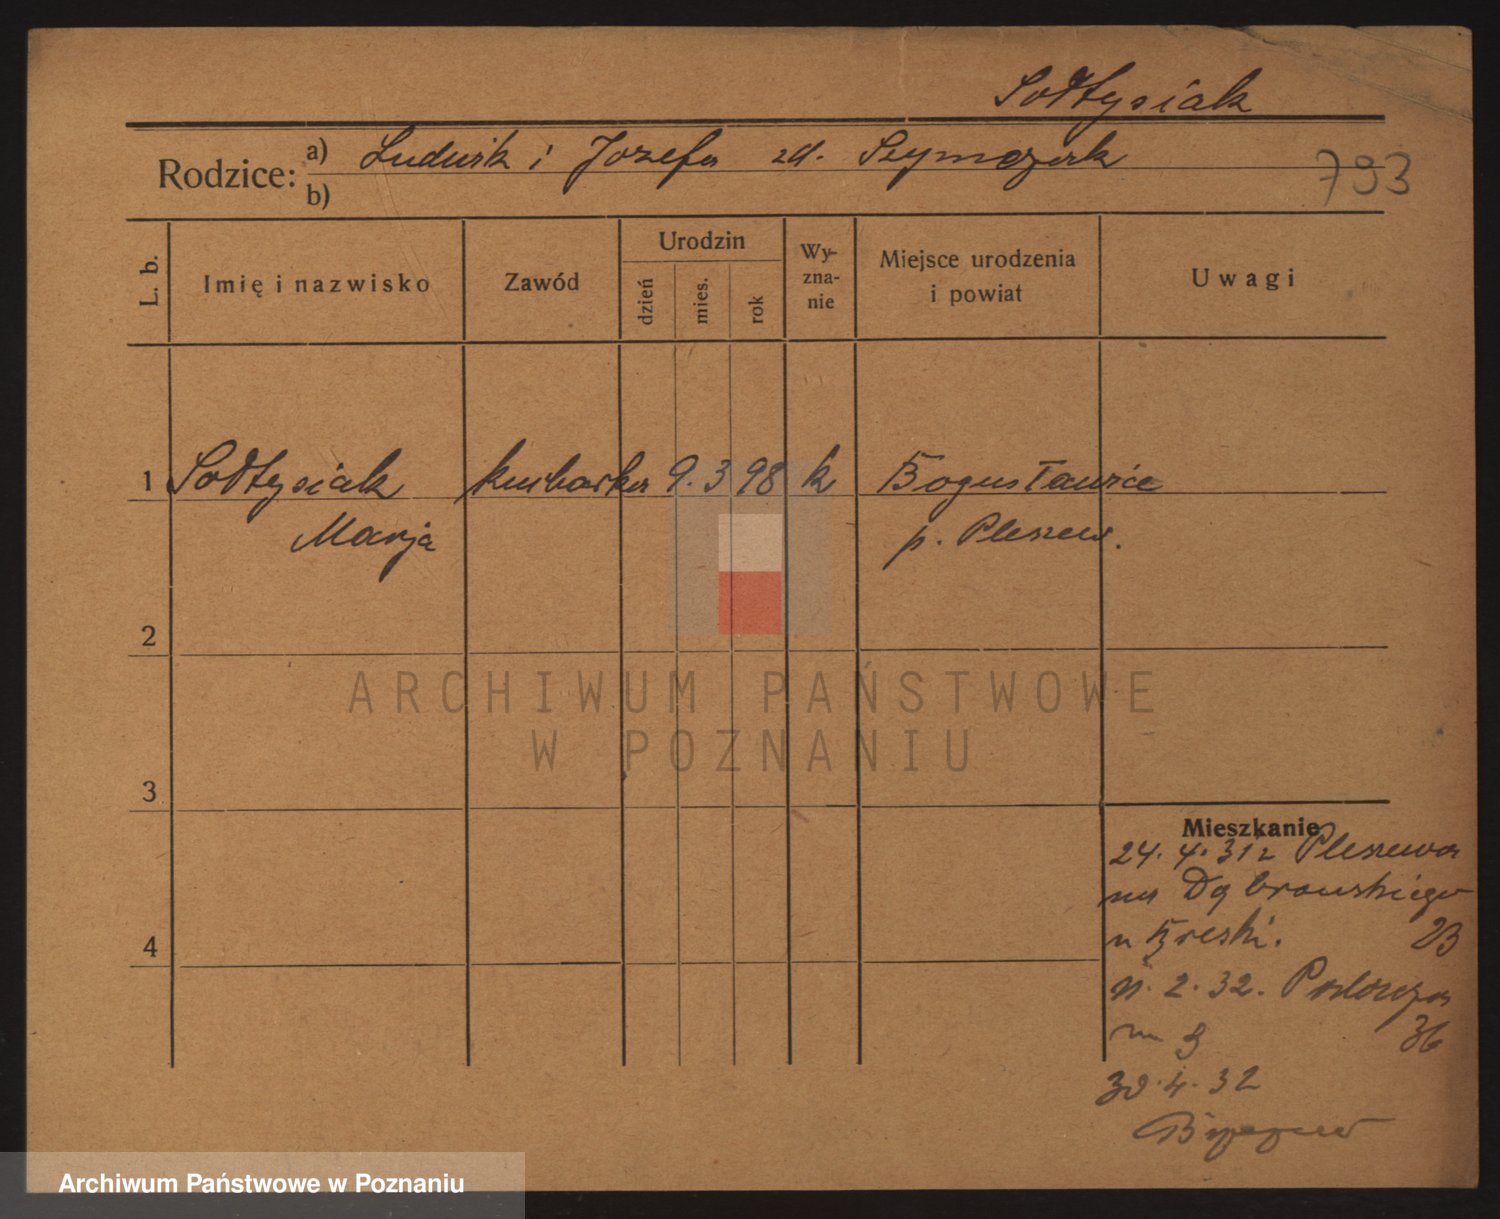 Sołtysiak
Rodzice: a) Ludwik i Józefa zd. Szymczak
b)
793
L. b.
Imię i nazwisko
Zawód
Urodzin
dzień
mies.
rok
Wy-
zna-
nie
Miejsce urodzenia
i powiat
Uwagi
1 Sołtysiak kucharka 9. 3 98 k Bogusławice
Marja p. Pleszew.
2
3
4
Mieszkanie
24. 4. 31 z Pleszewa
na Dąbrowskiego
23
2. 32.
36
30. 4. 32
ARCHIWUM PAŃSTWOWE
W POZNANIU
Archiwum Państwowe w Poznaniu